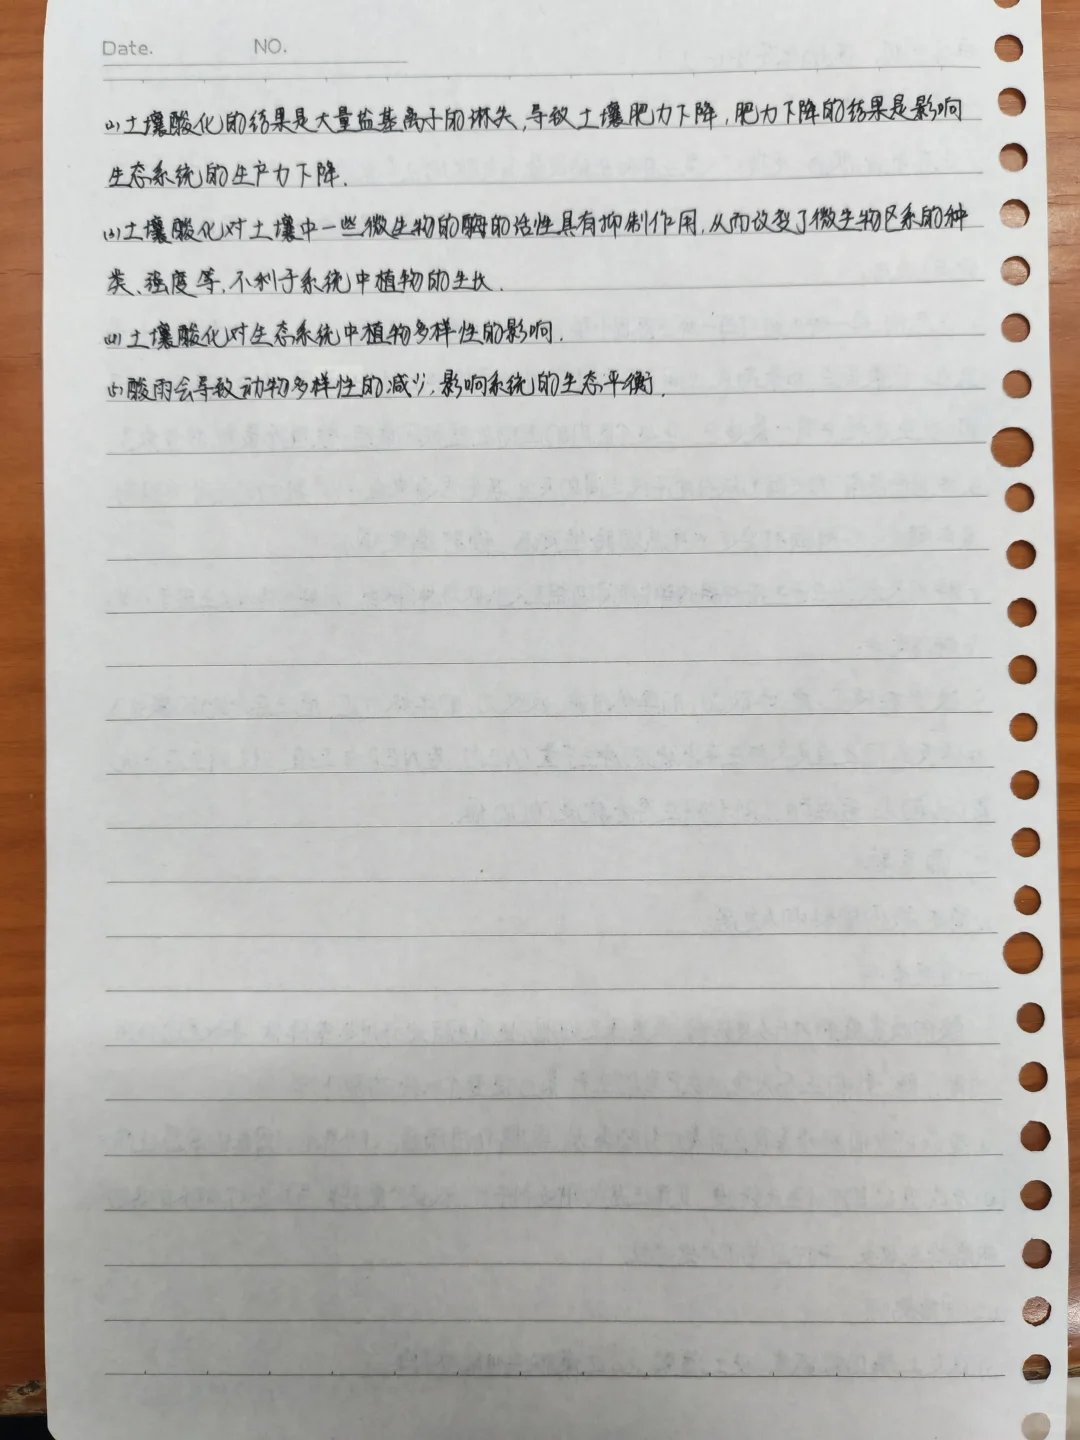 Date. NO.
(2)土壤酸化的结果是大量盐基离子的淋失,导致土壤肥力下降,肥力下降的结果是影响
生态系统的生产力下降.
(3)土壤酸化对土壤中一些微生物的酶的活性具有抑制作用,从而改变了微生物区系的种
类、强度等,不利于系统中植物的生长.
(4)土壤酸化对生态系统中植物多样性的影响.
(5)酸雨会导致动物多样性的减少,影响系统的生态平衡.